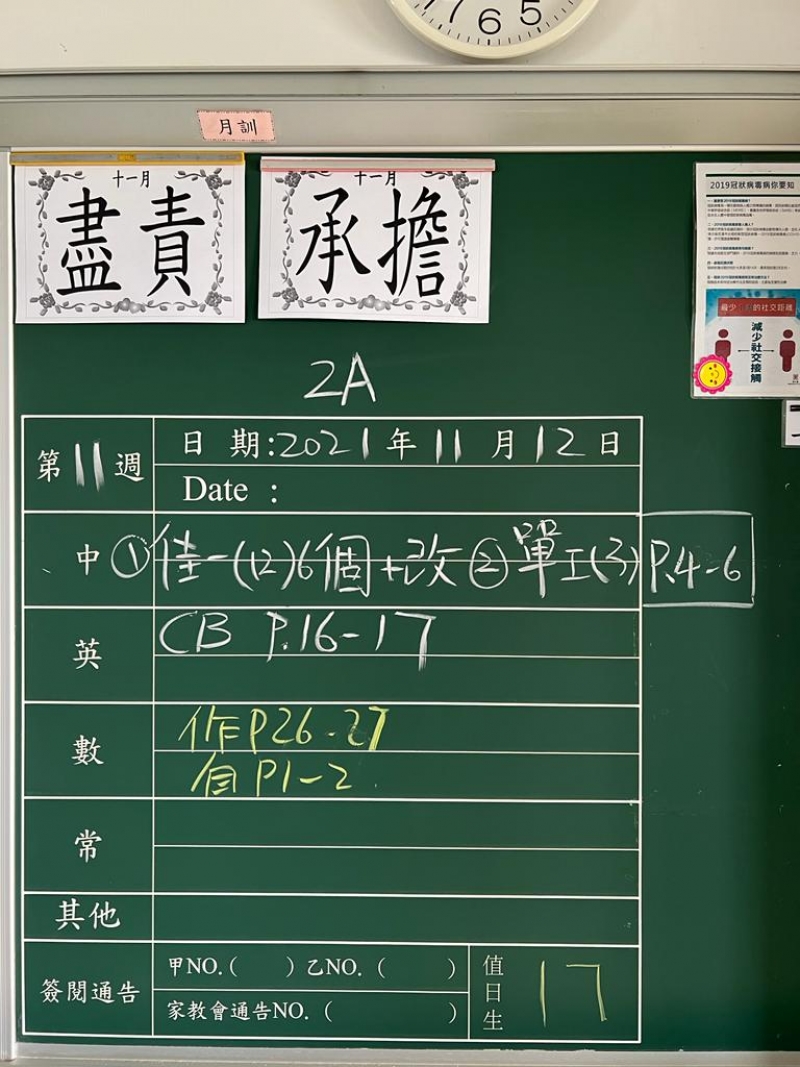 7 6 5
月訓
十一月
盡責
十一月
承擔
2019冠狀病毒病你要知
減少社交接觸
2A
第11週
日 期:2021年11月12日
Date :
中 ①佳一(12)6個+改 ②單工(3) P.4-6
英 CB P.16-17
數 作P26-27
自P1-2
常
其他
簽閱通告 甲NO.( ) 乙NO. ( )
家教會通告NO. ( )
值日生 17